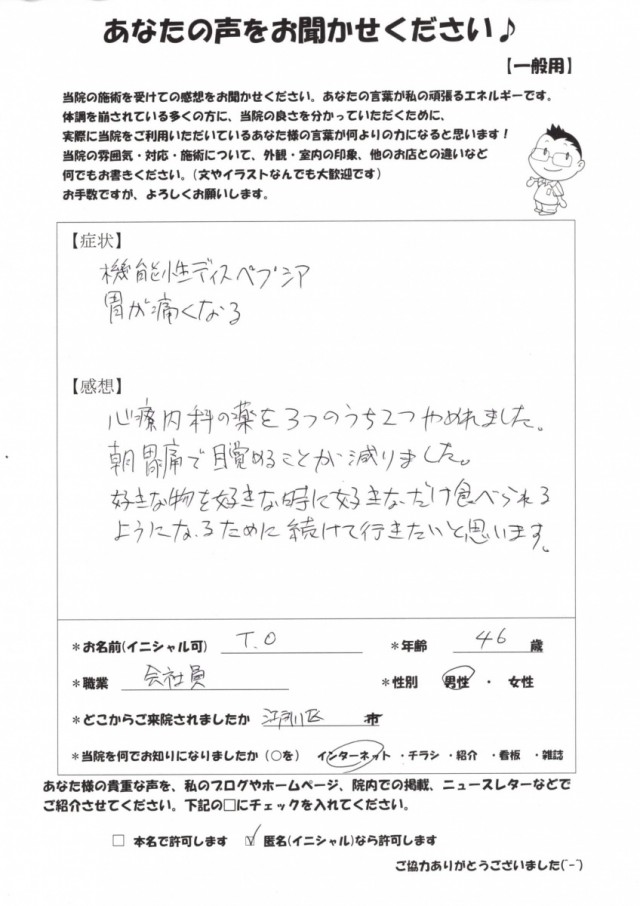 あなたの声をお聞かせください♪
【一般用】
当院の施術を受けての感想をお聞かせください。あなたの言葉が私の頑張るエネルギーです。
体調を崩されている多くの方に、当院の良さを分かっていただくために、
実際に当院をご利用いただいているあなた様の言葉が何よりの力になると思います！
当院の雰囲気・対応・施術について、外観・室内の印象、他のお店との違いなど
何でもお書きください。（文やイラストなんでも大歓迎です）
お手数ですが、よろしくお願いします。
【症状】
機能性ディスペプシア
胃が痛くなる
【感想】
心療内科の薬を3つのうち2つやめれました。
朝胃痛で目覚めることが減りました。
好きな物を好きな時に好きなだけ食べられる
ようになるために続けて行きたいと思います。
＊お名前(イニシャル可) T.O ＊年齢 46 歳
＊職業 会社員 ＊性別 男性 ・ 女性
＊どこからご来院されましたか 江戸川区 市
＊当院を何でお知りになりましたか（○を） インターネット ・チラシ ・紹介 ・看板 ・雑誌
あなた様の貴重な声を、私のブログやホームページ、院内での掲載、ニュースレターなどで
ご紹介させてください。下記の□にチェックを入れてください。
□ 本名で許可します ☑ 匿名(イニシャル)なら許可します
ご協力ありがとうございました(^-^)